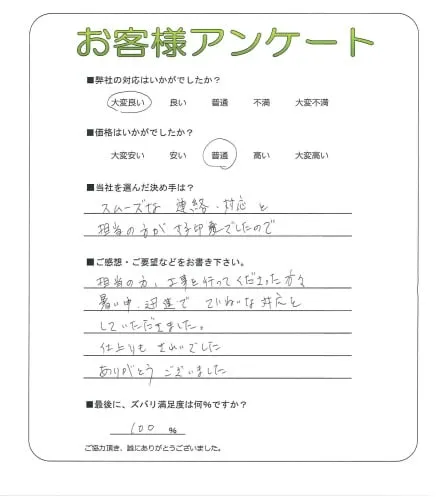 お客様アンケート
■弊社の対応はいかがでしたか?
大変良い 良い 普通 不満 大変不満
■価格はいかがでしたか?
大変安い 安い 普通 高い 大変高い
■当社を選んだ決め手は?
スムーズな 連絡・対応と
担当の方が 好印象でしたので
■ご感想・ご要望などをお書き下さい。
担当の方、工事を行ってくださった方々
暑い中、迅速で ていねいな対応を
していただきました。
仕上りも きれいでした
ありがとう ございました
■最後に、ズバリ満足度は何%ですか?
100 %
ご協力頂き、誠にありがとうございました。